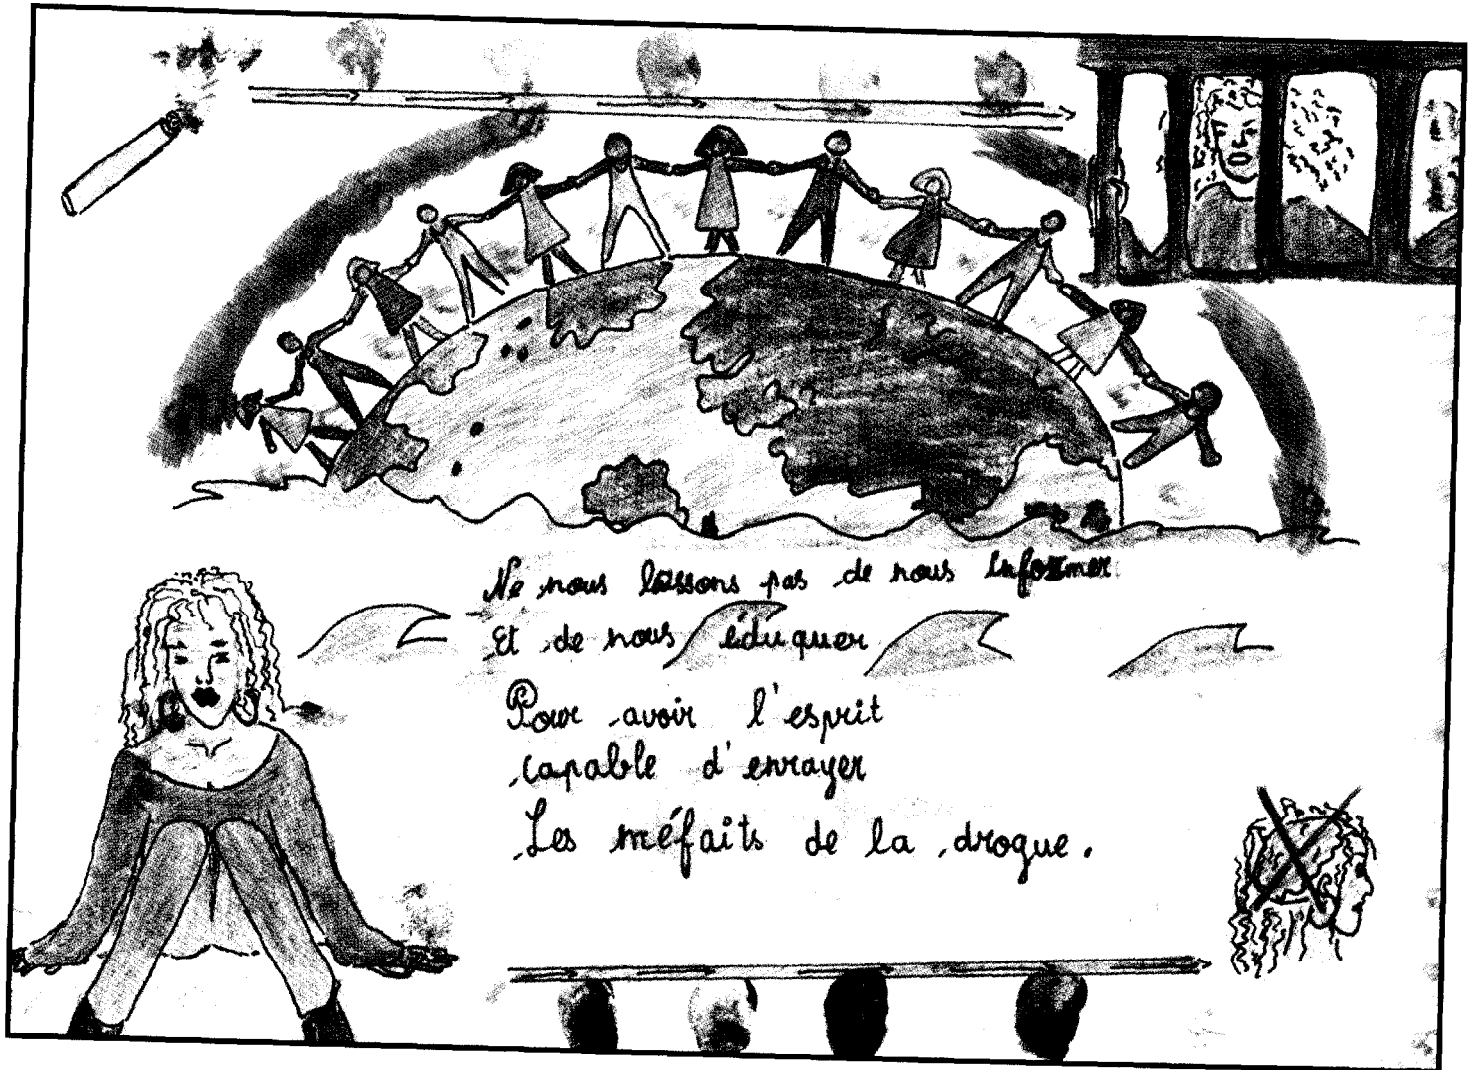 Ne nous lassons pas de nous informer
Et de nous éduquer
Pour avoir l'esprit
capable d'enrayer
Les méfaits de la drogue.